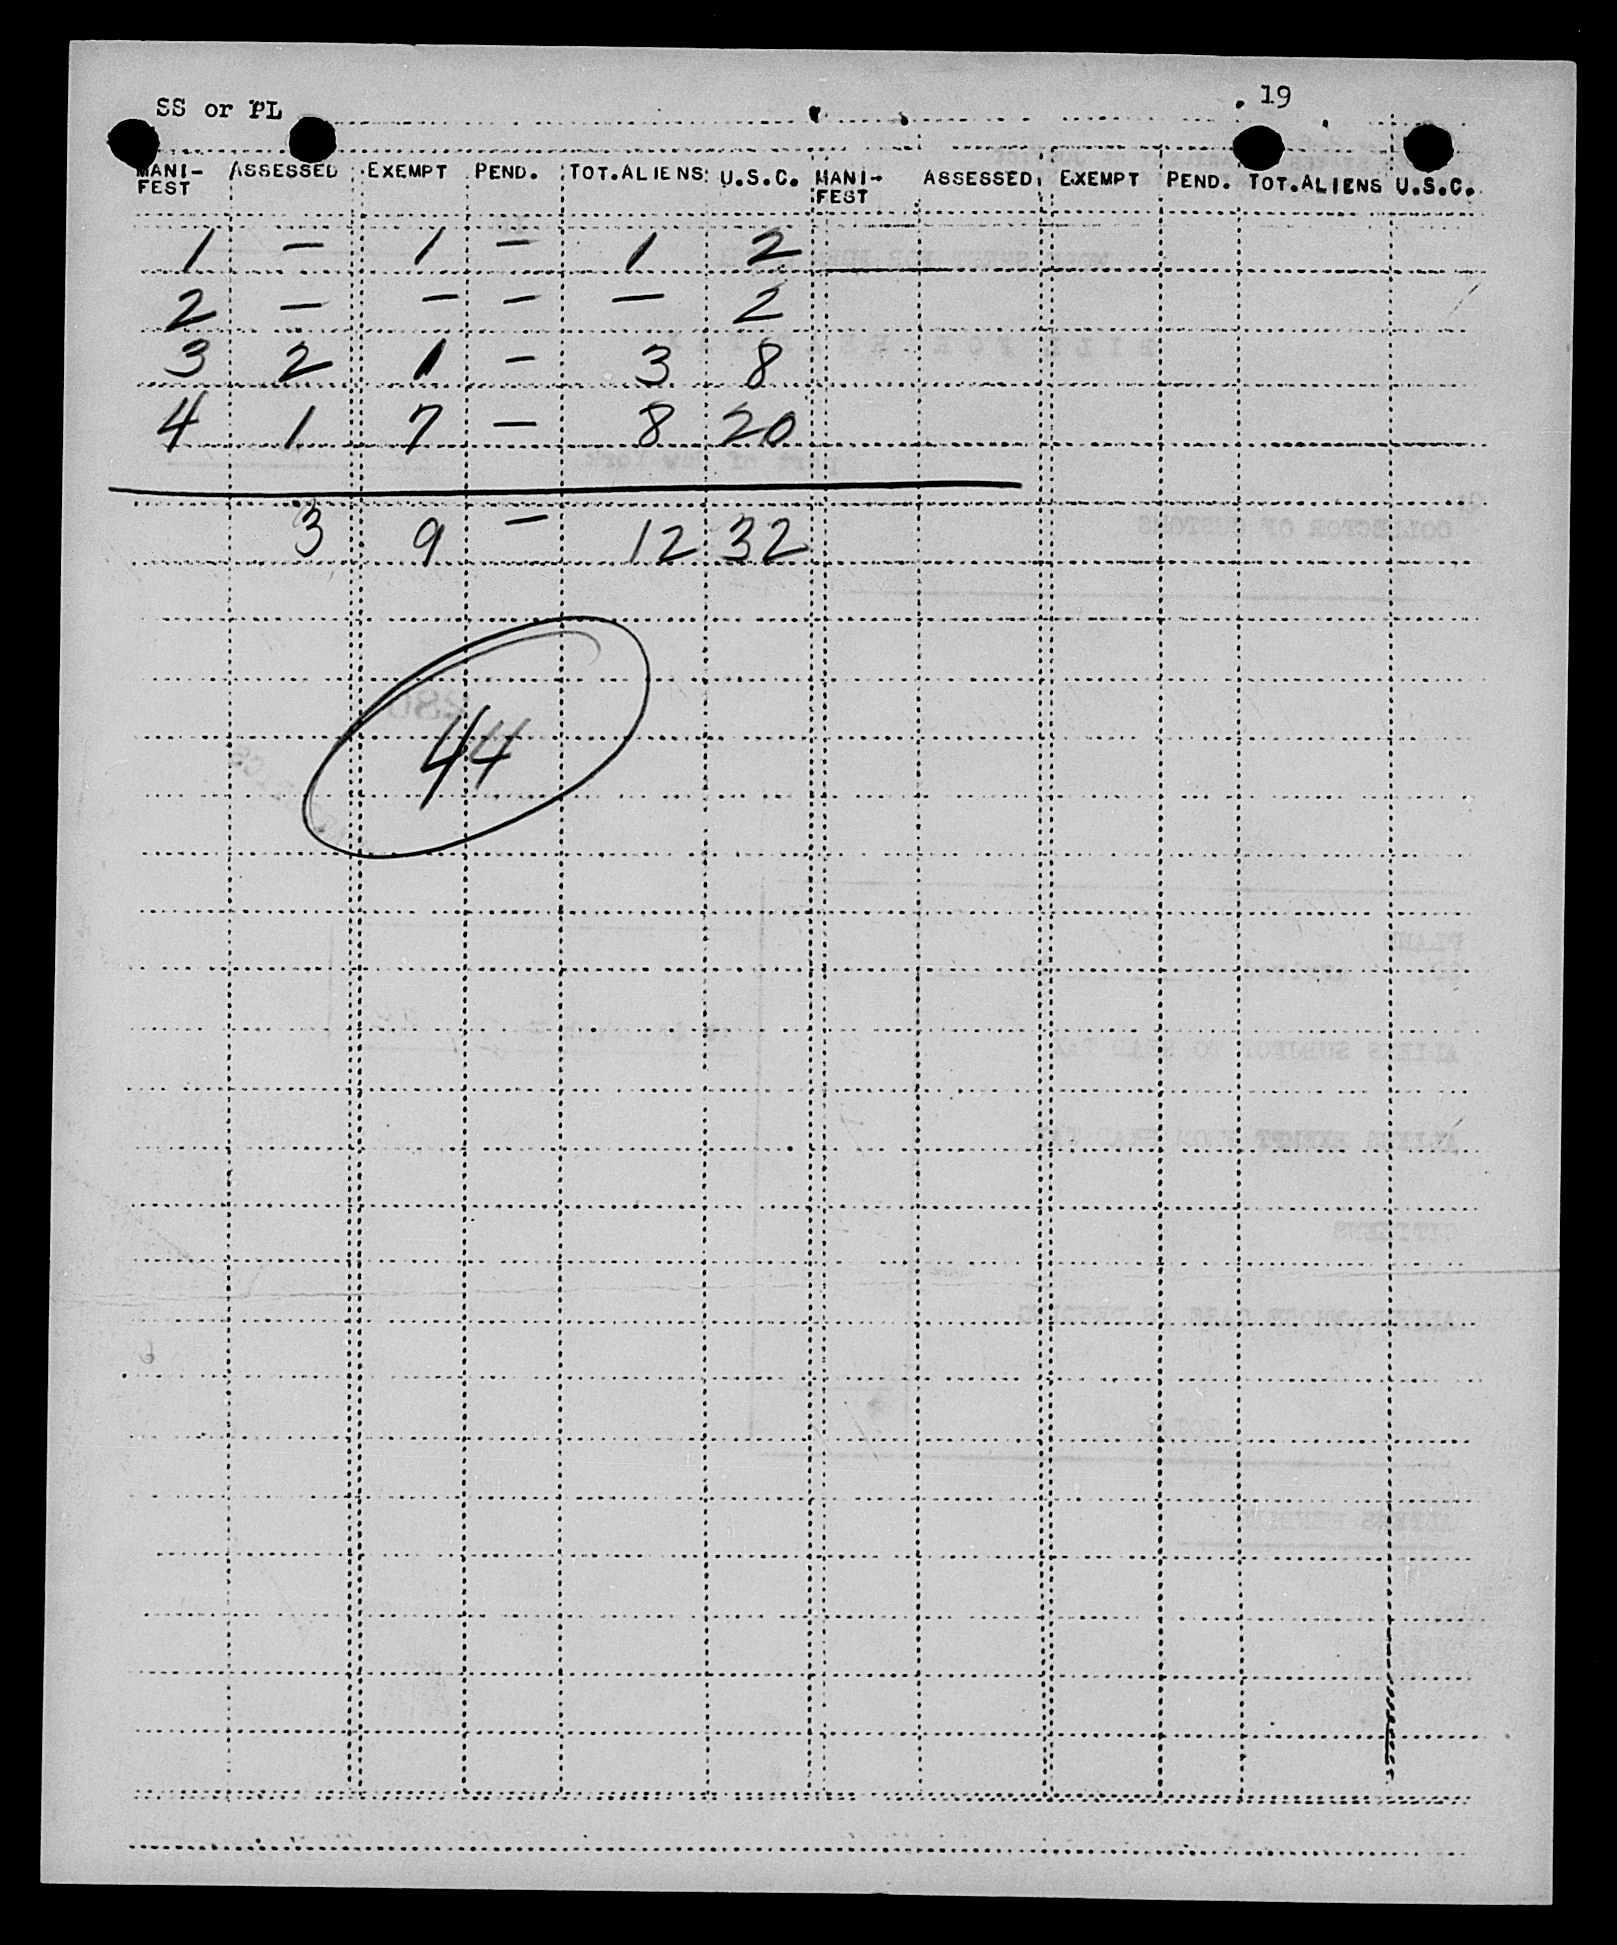 SS or PL 19
MANI-FEST ASSESSED EXEMPT PEND. TOT.ALIENS U.S.C. MANI-FEST ASSESSED EXEMPT PEND. TOT.ALIENS U.S.C.
1 — 1 — 1 2
2 — — — — 2
3 2 1 — 3 8
4 1 7 — 8 20
3 9 — 12 32
44